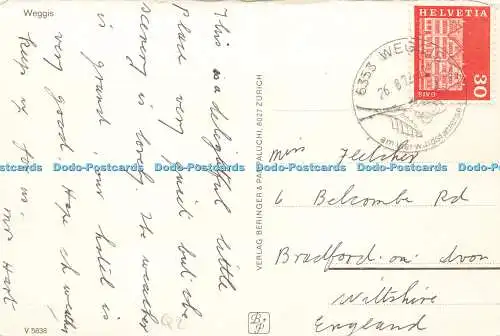 Weggis
This is a delightful little
place very quiet but the
scenery is lovely. The weather
is grand our hotel is
very good. Hope the weather
keeps up for us.
Mrs Hart
V 5838
VERLAG BERINGER & PAMPALUCHI, 8027 ZÜRICH
B P
HELVETIA
GAIS
30
6353 WEGGIS
26. 8. 72
Miss Fletcher
6 Belcombe Rd
Bradford. on. Avon
Wiltshire
England
Q2
Data-Postcards Data-Postcards Data-Postcards Data-Postcards Data-Postcards